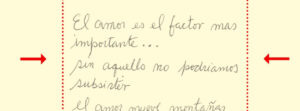 El amor es el factor mas
importante...
sin aquello no podriamos
subsistir
el amor mueve montañas